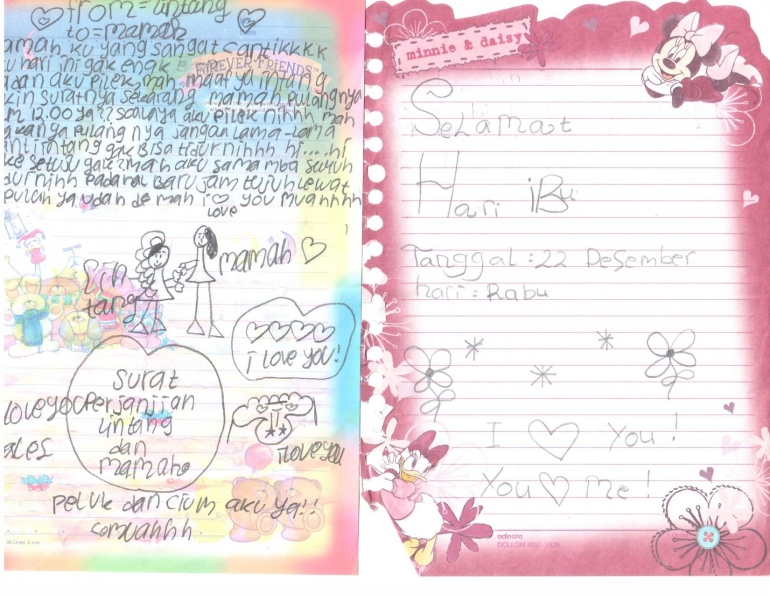 from = lintang
to = mamah
amah ku yang sangat cantikkkk
u hari ini gak engk
FOREVER FRIENDS
dan aku pilek mah maaf ya lintang
kin suratnya sekarang mamah pulangnya
m 12.00 ya?? soalnya aku pilek nihhh mah
akanya pulang nya jangan lama-lama
anti lintang gak bisa tidur nihhh hi....hi
ke setuju ga??? mah aku sama mba suruh
dur nihh padahal baru jam tujuh lewat
puluh ya udah de mah i ♡ you muahhhh
love
mamah ♡
lin
tang
♡♡♡♡
i love you!
surat
perjanjian
lintang
dan
mamah
love you
ales
i love you
peluk dan cium aku ya!!
minnie & daisy
Selamat
Hari iBu
Tanggal : 22 Desember
hari : Rabu
I ♡ You !
You ♡ me !
adinata